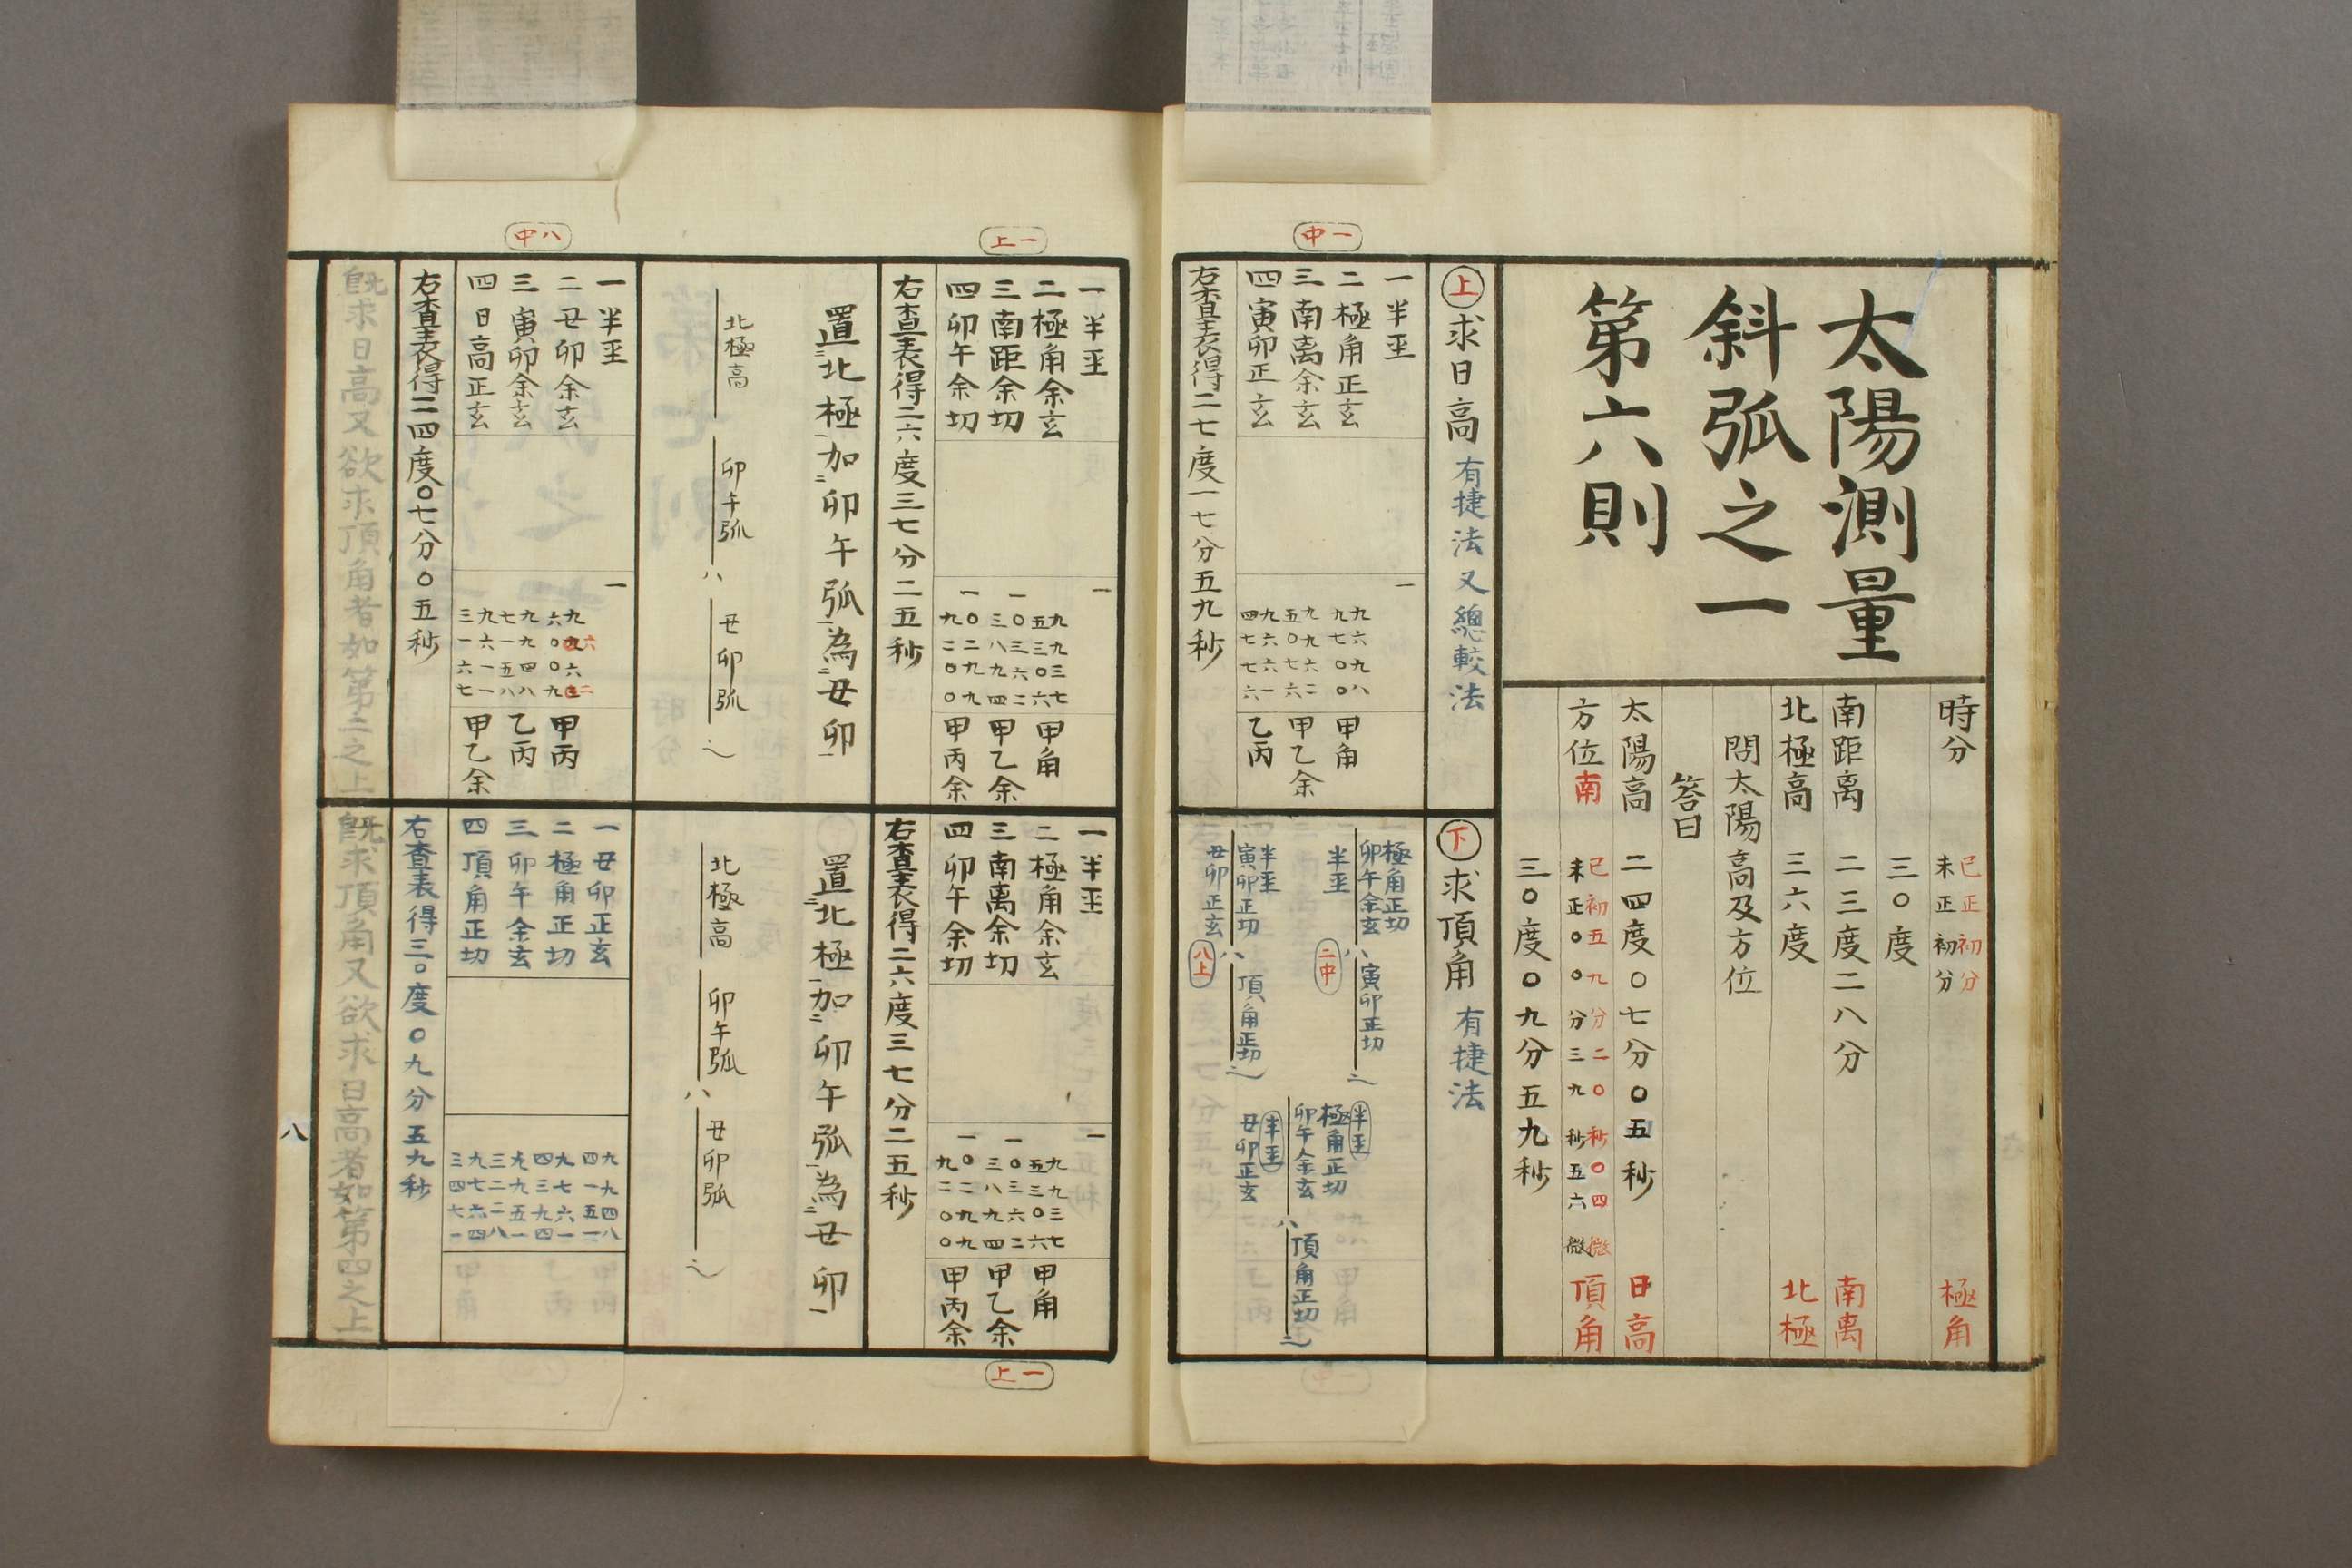 太陽測量
斜弧之一
第六則
時分
巳正初分
未正初分
極角
三〇度
南距离
二三度二八分
南离
北極高
三六度
北極
問太陽高及方位
答曰
太陽高
二四度〇七分〇五秒
日高
方位南
巳初五九分二〇秒〇四微
未正〇〇分三九秒五六微
頂角
三〇度〇九分五九秒
上
求日高
有捷法又總較法
下
求頂角
有捷法
一中
一半至
一
二極角正玄
九六九八
九七〇〇
甲角
三南离余玄
九九六二
五〇七六
甲乙余
四寅卯正玄
九六六一
四七七六
乙丙
右查表得二七度一七分五九秒
極角正切
卯午余玄
半至
八
寅卯正切
二中
半至
寅卯正切
丑卯正玄
八
頂角正切
八上
半至
極角正切
卯午余玄
半至
丑卯正玄
八
頂角正切
一上
一半至
一
二極角余玄
九九三七
五三〇六
甲角
三南距余切
一〇三六二
三八九四
甲乙余
四卯午余切
一〇二九九
九二〇〇
甲丙余
右查表得二六度三七分二五秒
置北極加卯午弧為丑卯
北極高
卯午弧
八
丑卯弧
八中
一半至
一
二丑卯余玄
甲丙
三寅卯余玄
九九四八
七一五八
乙丙
四日高正玄
九六一一
三一六七
甲乙余
右查表得二四度〇七分〇五秒
既求日高又欲求頂角者如第二之上
一半至
一
二極角余玄
九九三七
五三〇六
甲角
三南离余切
一〇三六二
三八九四
甲乙余
四卯午余切
一〇二九九
九二〇〇
甲丙余
右查表得二六度三七分二五秒
一上
置北極加卯午弧為丑卯
北極高
卯午弧
八
丑卯弧
一丑卯正玄
九九四八
四一五一
二極角正切
九七六一
四三九四
三卯午余玄
九九五一
三二二八
四頂角正切
九七六四
三四七一
右查表得三〇度〇九分五九秒
既求頂角又欲求日高者如第四之上
八